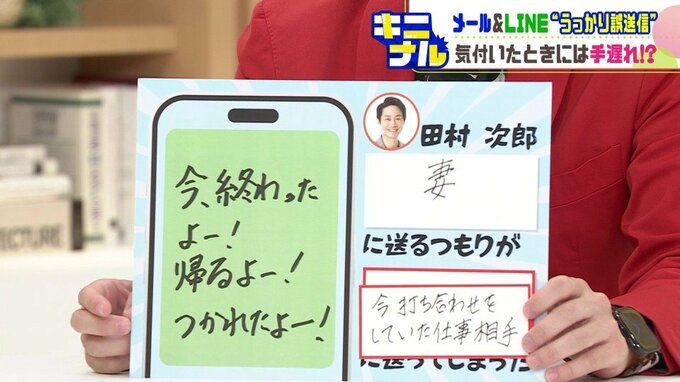 キニナル
メール&LINE“うっかり誤送信”
気付いたときには手遅れ!?
今、終わった
よー!
帰るよー!
つかれたよー!
田村 次郎
妻
に送るつもりが
今打ち合わせを
していた仕事相手
に送ってしまった